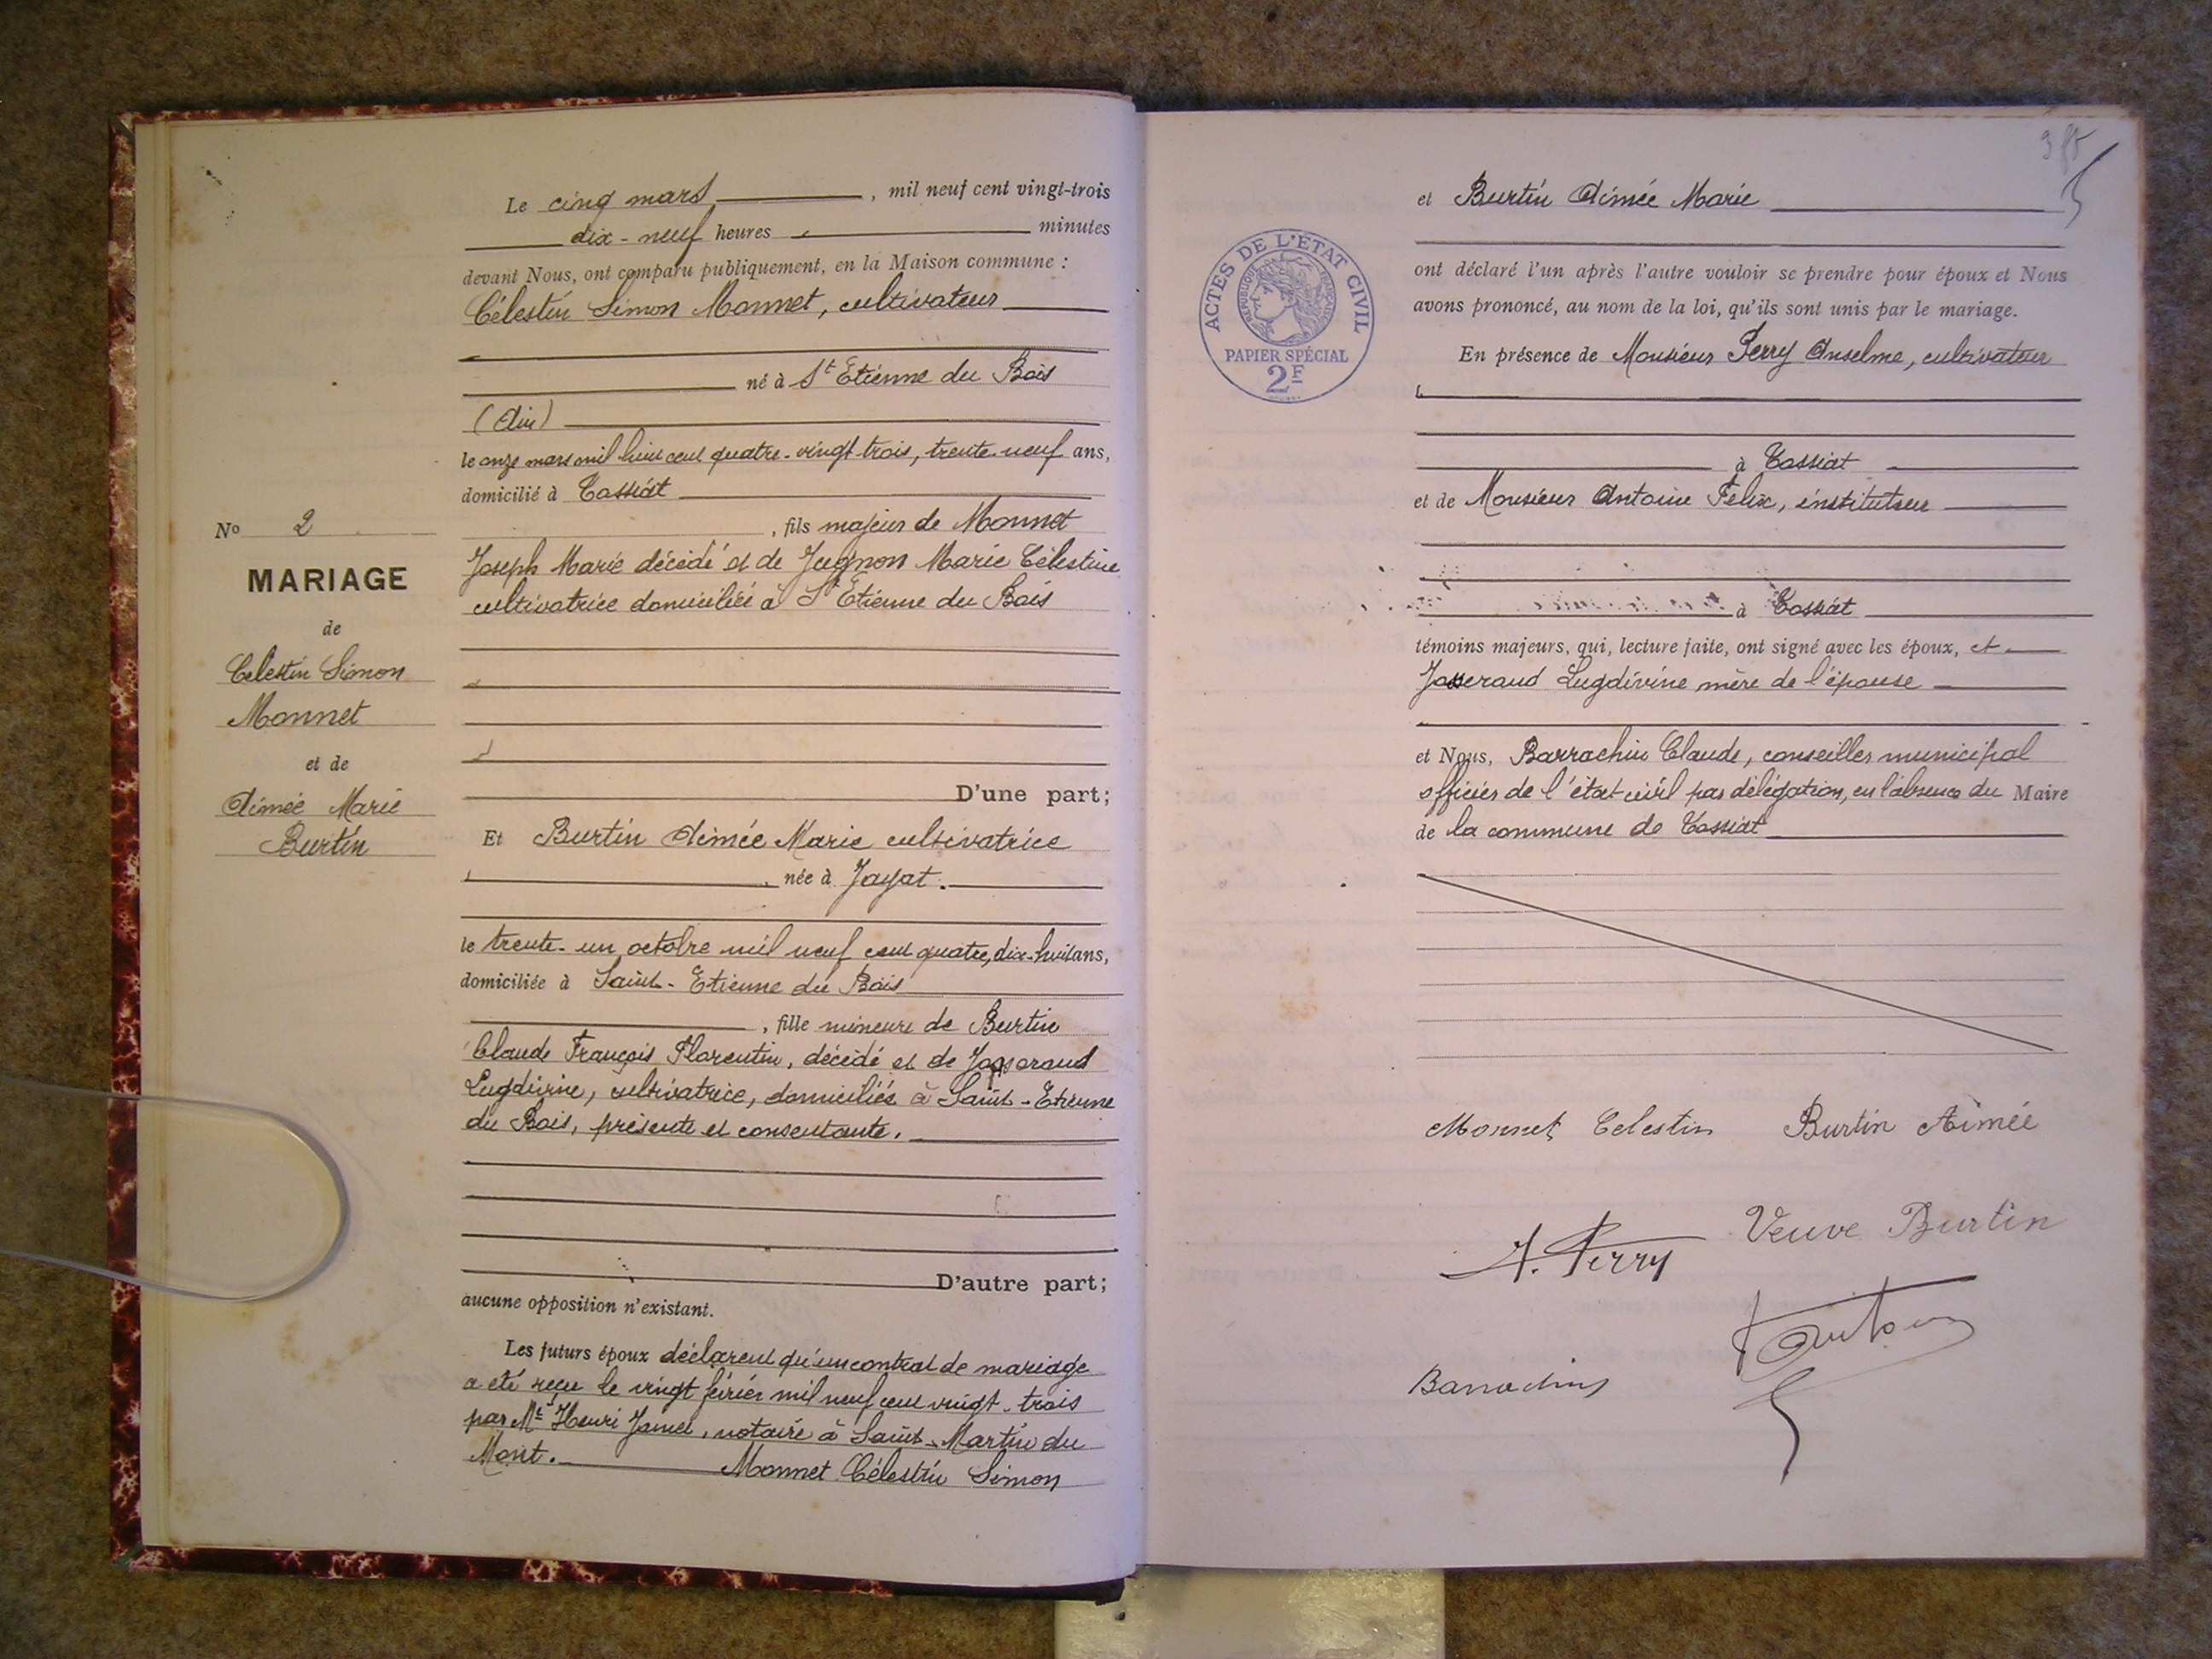 Le cinq mars, mil neuf cent vingt-trois
dix-neuf heures minutes
devant Nous, ont comparu publiquement, en la Maison commune :
Célestin Simon Monnet, cultivateur
né à St Etienne du Bois
(Ain)
le onze mars mil huit cent quatre-vingt-trois, trente-neuf ans,
domicilié à Tossiat
, fils majeur de Monnet
Joseph Marie décédé et de Jugnon Marie Célestine
cultivatrice domiciliée à St Etienne du Bois
D'une part;
Et Burtin Aimée Marie cultivatrice
, née à Jayat.
le trente-un octobre mil neuf cent quatre, dix-huit ans,
domiciliée à Saint-Etienne du Bois
, fille mineure de Burtin
Claude François Florentin, décédé et de Josserand
Lugdivine, cultivatrice, domiciliés à Saint-Etienne
du Bois, présente et consentante.
D'autre part;
aucune opposition n'existant.
Les futurs époux déclarent qu'un contrat de mariage
a été reçu le vingt février mil neuf cent vingt-trois
par Me Henri notaire à Saint-Martin du
Mont. Monnet Célestin Simon
No 2
MARIAGE
de
Celestin Simon
Monnet
et de
Aimée Marie
Burtin
385
et Burtin Aimée Marie
ont déclaré l'un après l'autre vouloir se prendre pour époux et Nous
avons prononcé, au nom de la loi, qu'ils sont unis par le mariage.
En présence de Monsieur Perry Anselme, cultivateur
à Tossiat
et de Monsieur Antoine Félix, instituteur
à Tossiat
témoins majeurs, qui, lecture faite, ont signé avec les époux, et
Josserand Lugdivine mère de l'épouse
et Nous, Barrachin Claude, conseiller municipal
officier de l'état-civil par délégation, en l'absence du Maire
de la commune de Tossiat
ACTES DE L'ÉTAT CIVIL
RÉPUBLIQUE FRANÇAISE
PAPIER SPÉCIAL
2F
Monnet Celestin Burtin Aimée
A. Perry Veuve Burtin
Antoine
Barrachin